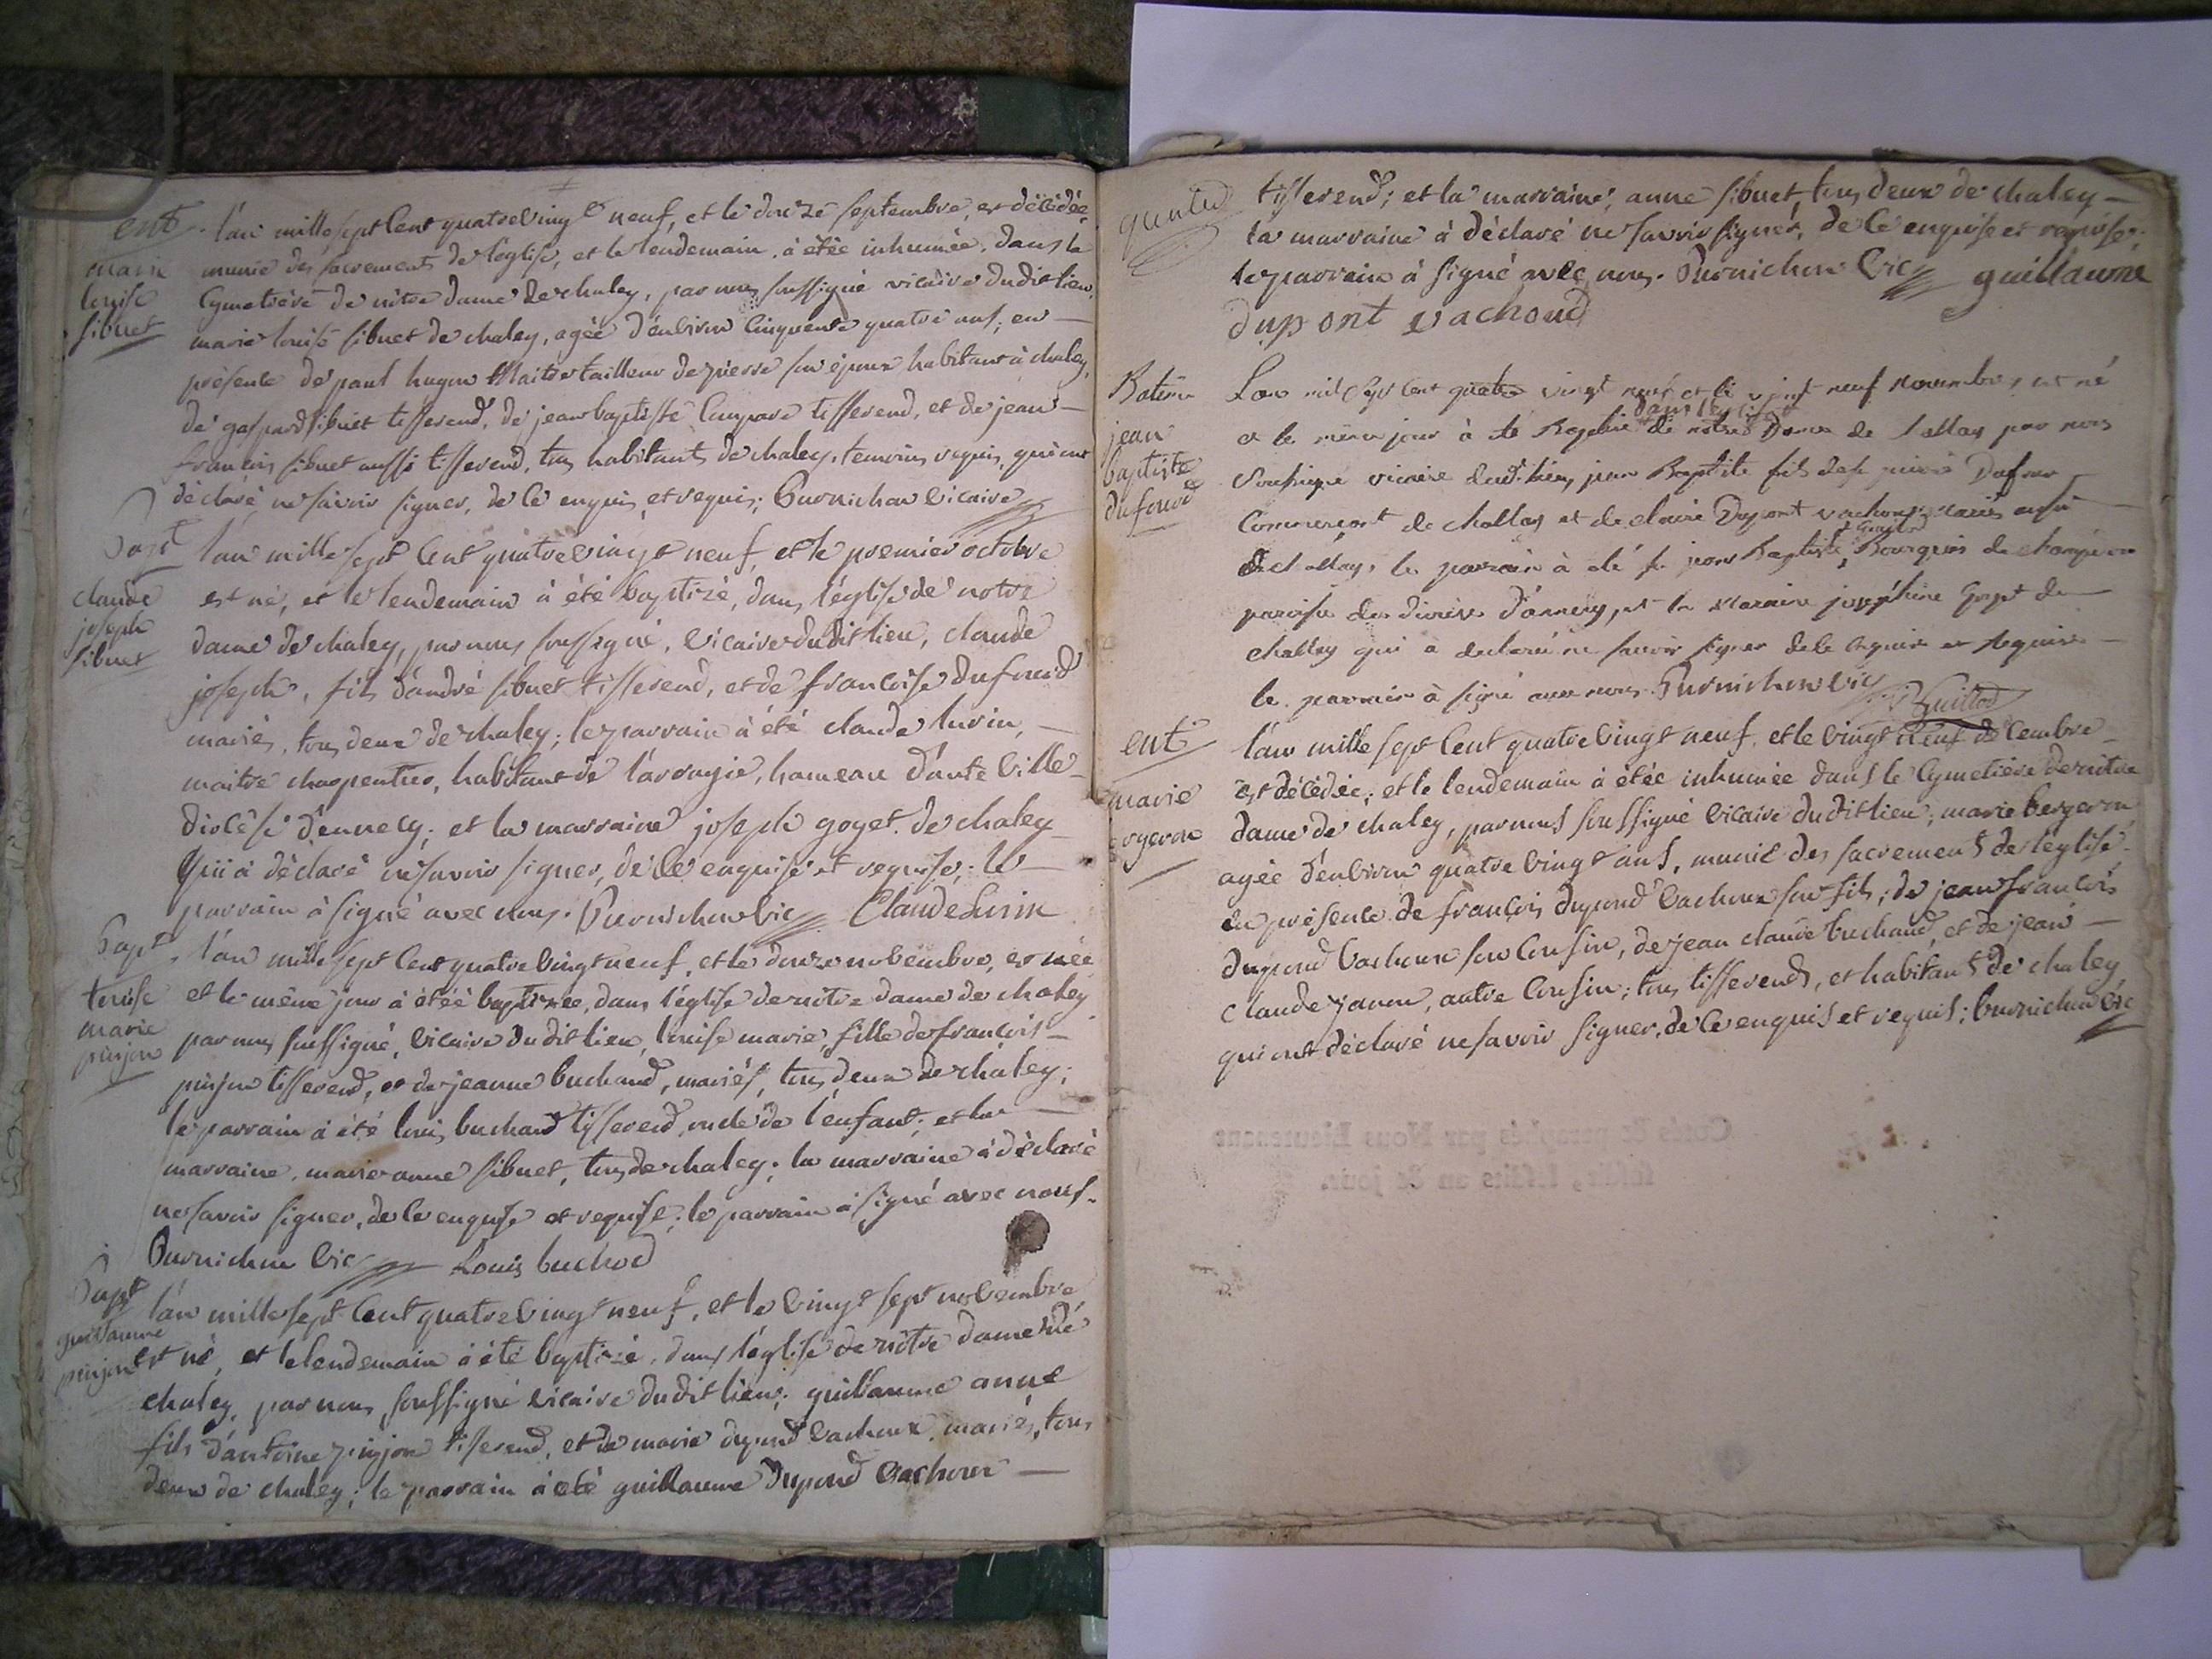 ent.
marie
louise
sibuet
l'an mille sept cent quatrevingt neuf, et le douze septembre, est décédée,
munie des sacrements de l'église, et le lendemain, à étée inhumée, dans le
cymetiére de nôtre dame de chaley, par nous soussigné vicaire dudit lieu,
marie louise sibuet de chaley, agée d'environ cinquante quatre ans, en
présence de paul hugon Maitre tailleur de pierre son époux habitant à chaley,
de gaspard sibuet tisserend, de jean baptiste tisserend, et de jean
francois sibuet aussi tisserend, tous habitants de chaley, temoins requis, qui ont
déclaré ne savoir signer, de ce enquis, et requis; Burnichon vicaire
Bapt
claude
joseph
sibuet
l'an mille sept cent quatrevingt neuf, et le premier octobre
est né, et le lendemain à été baptizé, dans l'église de notre
dame de chaley, par nous soussigné, vicaire dudit lieu, claude
joseph, fils d'andré sibuet tisserend, et de francoise dufourd
mariés, tous deux de chaley; le parrain à été claude lurin,
maitre charpentier, habitant de hameau d'
diocèse d'ennecy; et la marraine joseph goget de chaley
qui à déclaré ne savoir signer, de ce enquise et requise; le
parrain à signé avec nous. Burnichon vic Claude Lurin
Bapt.
louise
marie
pinjon
l'an mille sept cent quatrevingt neuf, et le douze novembre, est née
et le même jour à étée baptizée, dans l'église de nôtre dame de chaley
par nous soussigné, vicaire dudit lieu, louise marie, fille de françois
pinjon tisserend, et de jeanne buchand, mariés, tous deux de chaley;
le parrain à été louis buchand tisserend, oncle de l'enfant; et la
marraine, marie anne sibuet, tous de chaley; la marraine à déclaré
ne savoir signer, de ce enquise et requise; le parrain à signé avec nous.
Burnichon vic Louis buchod
Bapt
guillaume
pinjon
l'an mille sept cent quatrevingt neuf, et le vingt sept novembre
est né, et le lendemain à été baptizé, dans l'église de nôtre dame de
chaley, par nous soussigné vicaire dudit lieu; guillaume anne
fils d'antoine pinjon tisserend, et de marie dupond vachoux, mariés, tous
deux de chaley; le parrain à été guillaume dupond vachoux
tisserend; et la marraine, anne sibuet, tous deux de chaley
la marraine à déclaré ne savoir signer, de ce enquise et requise;
le parrain à signé avec nous. Burnichon vic guillaume
dupont vachoud
Batême
jean
baptiste
dufourd
L'an mil sept cent quatre vingt neuf et le vingt neuf novembre est né
et le même jour à été Baptisé dans l'église de notre Dame de Challay par nous
soussigné vicaire dudit lieu, jean Baptiste fils de Dufour
commerçant de challay et de claire Dupont vachoux mariés aussi
de challay, le parrain à été jean Baptiste Bourgeois de
paroisse du diocèse d'annecy, et la Maraine joséphine Goget de
challay qui à declaré ne savoir signer de ce enquise et requise
le parrain à signé avec nous. Burnichon vic
ent.
marie
bergeron
l'an mille sept cent quatrevingt neuf, et le vingt neuf décembre
est décédée; et le lendemain à étée inhumée dans le cymetiére de nôtre
dame de chaley, par nous soussigné vicaire dudit lieu; marie bergeron
agée d'environ quatre vingt ans, munie des sacrements de l'église
en présence de françois dupond vachoux son fils; de jean françois
dupond vachoux son cousin, de jean claude buchand, et de jean
claude janon, autre cousin; tous tisserends, et habitants de chaley
qui ont déclaré ne savoir signer, de ce enquis et requis; burnichon vic